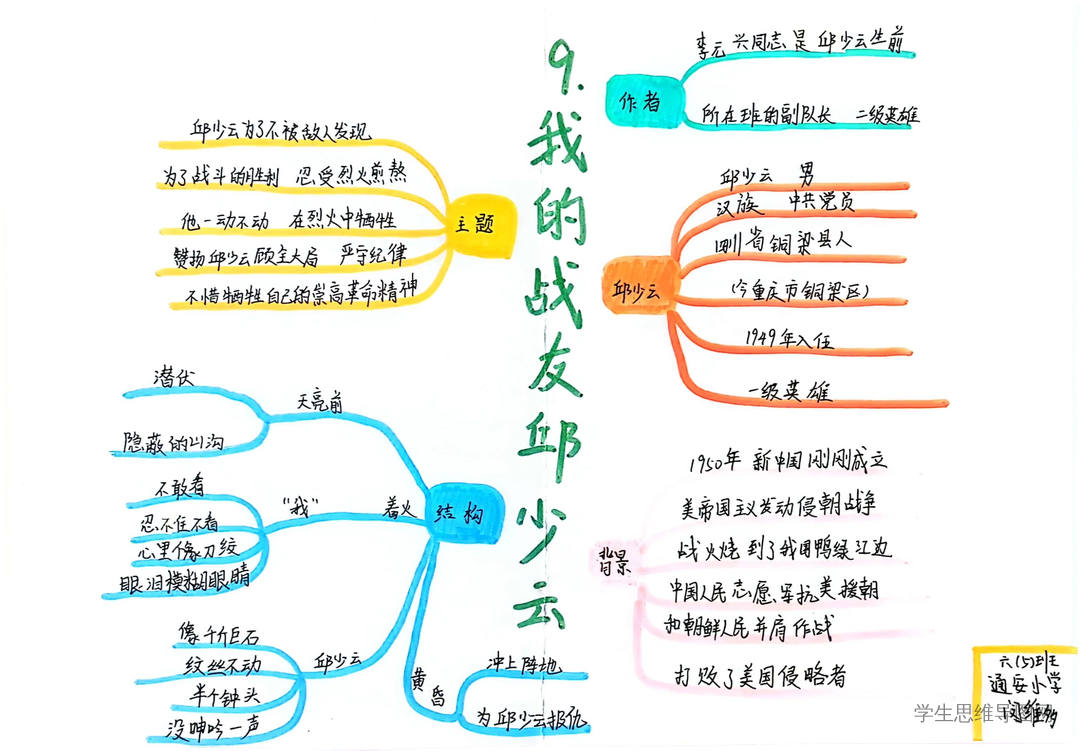 9.我的战友邱少云
作者
李元兴同志是邱少云生前
所在班的副队长 二级英雄
邱少云
邱少云 男
汉族 中共党员
四川省铜梁县人
(今重庆市铜梁区)
1949年入伍
一级英雄
背景
1950年 新中国刚刚成立
美帝国主义发动侵朝战争
战火烧到了我国鸭绿江边
中国人民志愿军抗美援朝
和朝鲜人民并肩作战
打败了美国侵略者
主题
邱少云为了不被敌人发现
为了战斗的胜利 忍受烈火煎熬
他一动不动 在烈火中牺牲
赞扬邱少云顾全大局 严守纪律
不惜牺牲自己的崇高革命精神
结构
天亮前
潜伏
隐蔽的山沟
着火
“我”
不敢看
忍不住不看
心里像刀绞
眼泪模糊眼睛
邱少云
像千斤巨石
纹丝不动
半个钟头
没呻吟一声
黄昏
冲上阵地
为邱少云报仇
六(5)班
通安小学
学生思维导图